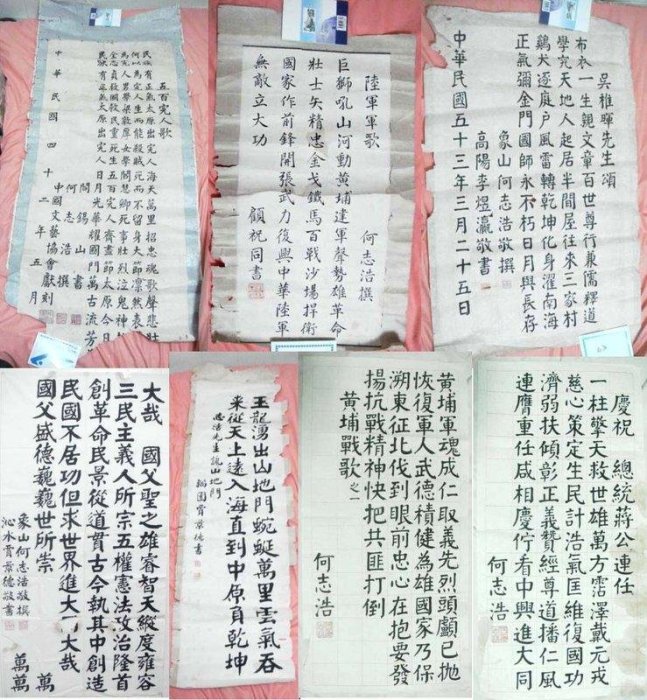 五百完人歌
民族有正氣太原出完人海天萬里招忠魂歌聲悲壯
何以為完人生而能殺賊死而不留身大節凜然表
為完人男學梁敦厚女學閻慧卿死事壯烈泣鬼神
金志貞殺賊救民重死生五百完人齊盡節太原今日
民族有正氣太原出完人日月光華耀國門萬古流芳
閻錫山書
何志浩撰
中國文藝協會獻刻
中華民國四十二年五月
陸軍軍歌 何志浩撰
巨獅吼山河動黃埔建軍聲勢雄革命
壯士矢精忠金戈鐵馬百戰沙場捍衛
國家作前鋒開張武力復興中華陸軍
無敵立大功 顧祝同書
吳稚暉先生頌
布衣一生親文章百世尊行兼儒釋道
學究天地人起居半間屋往來三家村
鷄犬逐庭户風雷轉乾坤化身濯南海
正氣彌金門國師永不朽日月與長存
象山何志浩敬撰
高陽李煜瀛敬書
中華民國五十三年三月二十五日
大哉 國父聖之雄睿智天縱度雍容
三民主義人所宗五權憲法政治隆首
創革命民景從道貫古今執其中創造
民國不居功但求世界進大同大哉
國父盛德巍巍世所崇 萬萬
象山何志浩敬撰
沁水賈景德敬書
玉龍湧出山地門蜿蜒萬里雲氣吞
來從天上遠入海直到中原負乾坤
志浩先生詠山地門
韜園賈景德書
黃埔軍魂成仁取義先烈頭顱已拋
恢復軍人武德積健為雄國家乃保
溯東征北伐到眼前忠心在抱要發
揚抗戰精神快把共匪打倒
黃埔戰歌之一 何志浩
慶祝 總統蔣公連任
一柱擎天救世雄萬方霑澤戴元戎
慈心策定生民計浩氣匡維復國功
濟弱扶傾彰正義贊經尊道播仁風
連膺重任咸相慶佇看中興進大同
何志浩